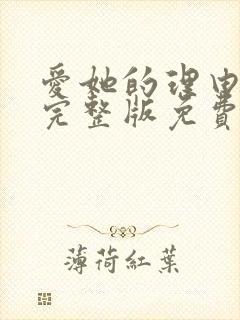 愛她的理由
完整版免費
薄荷紅葉